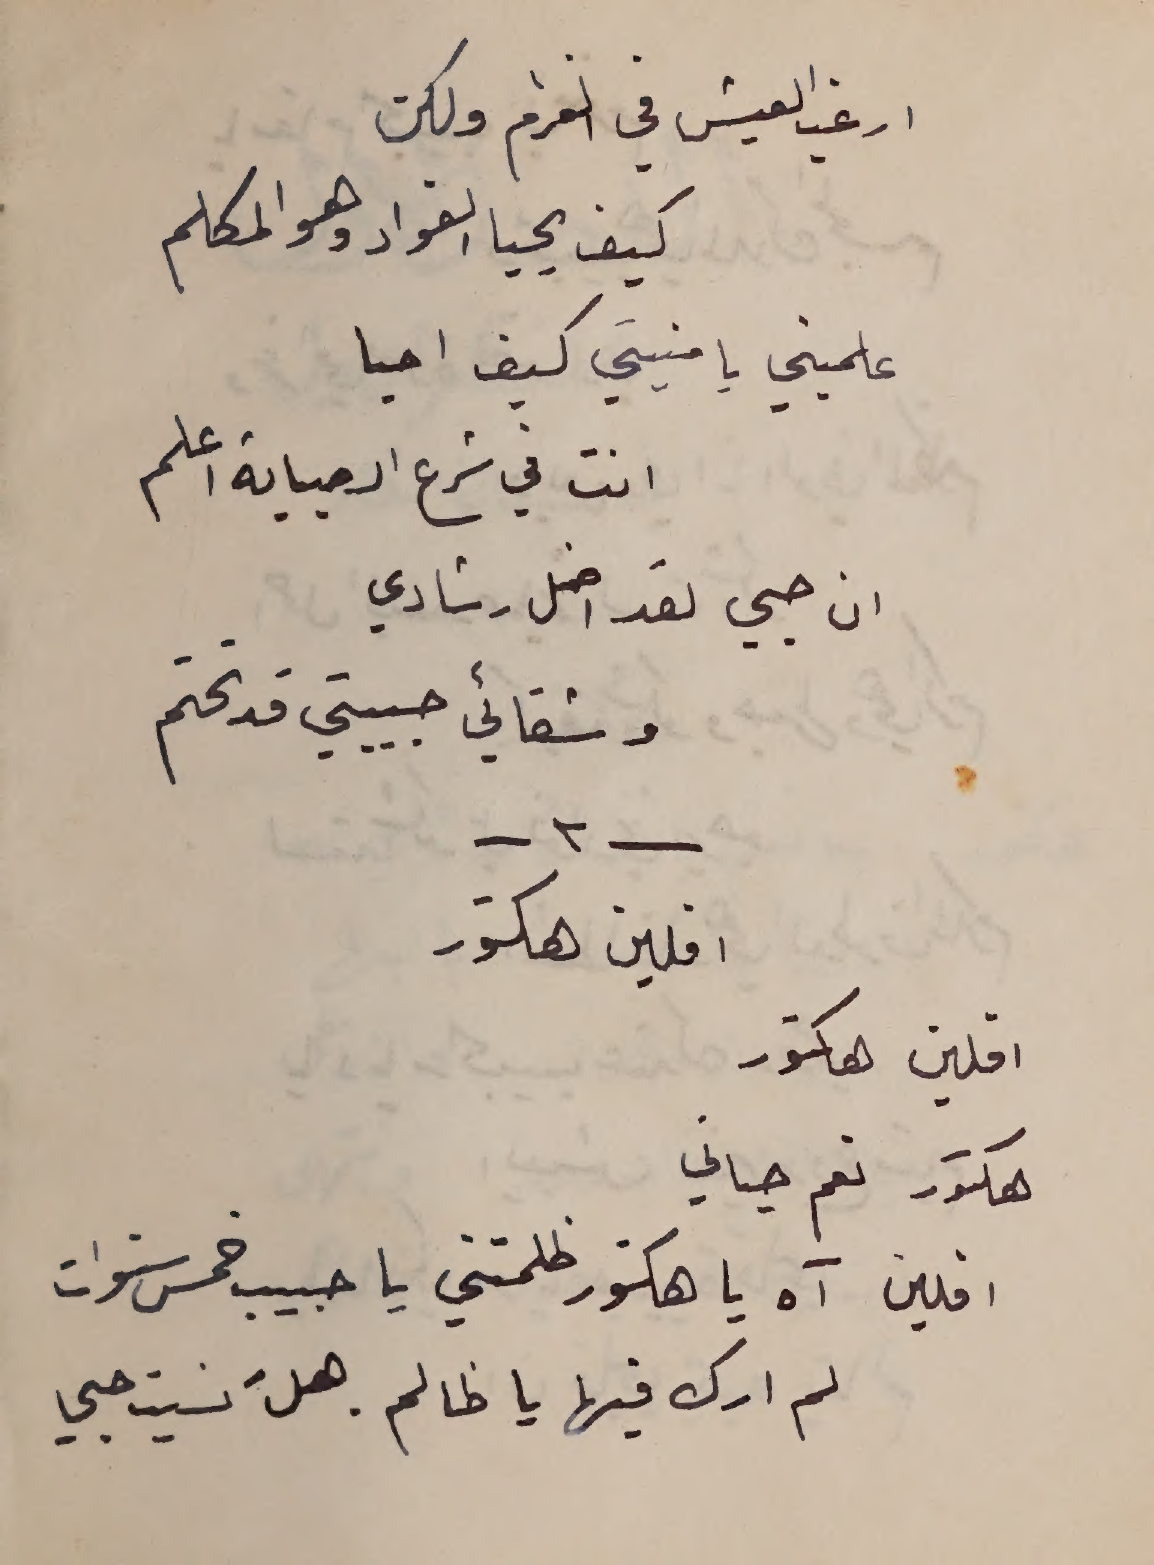 ارغب العيش في الغرام ولكن
كيف يحيا الفواد وهو المكلم
علميني يا منيتي كيف احيا
انت في شرع الصبابة اعلم
ان حبي لقد اضل رشادي
وشقائي حبيبتي قد تحتم
— ٢ —
افلين هكتور
افلين هكتور
هكتور نعم حياتي
افلين آه يا هكتور ظلمتني يا حبيب خمس سنوات
لم ارك فيها يا ظالم . هل نسيت حبي